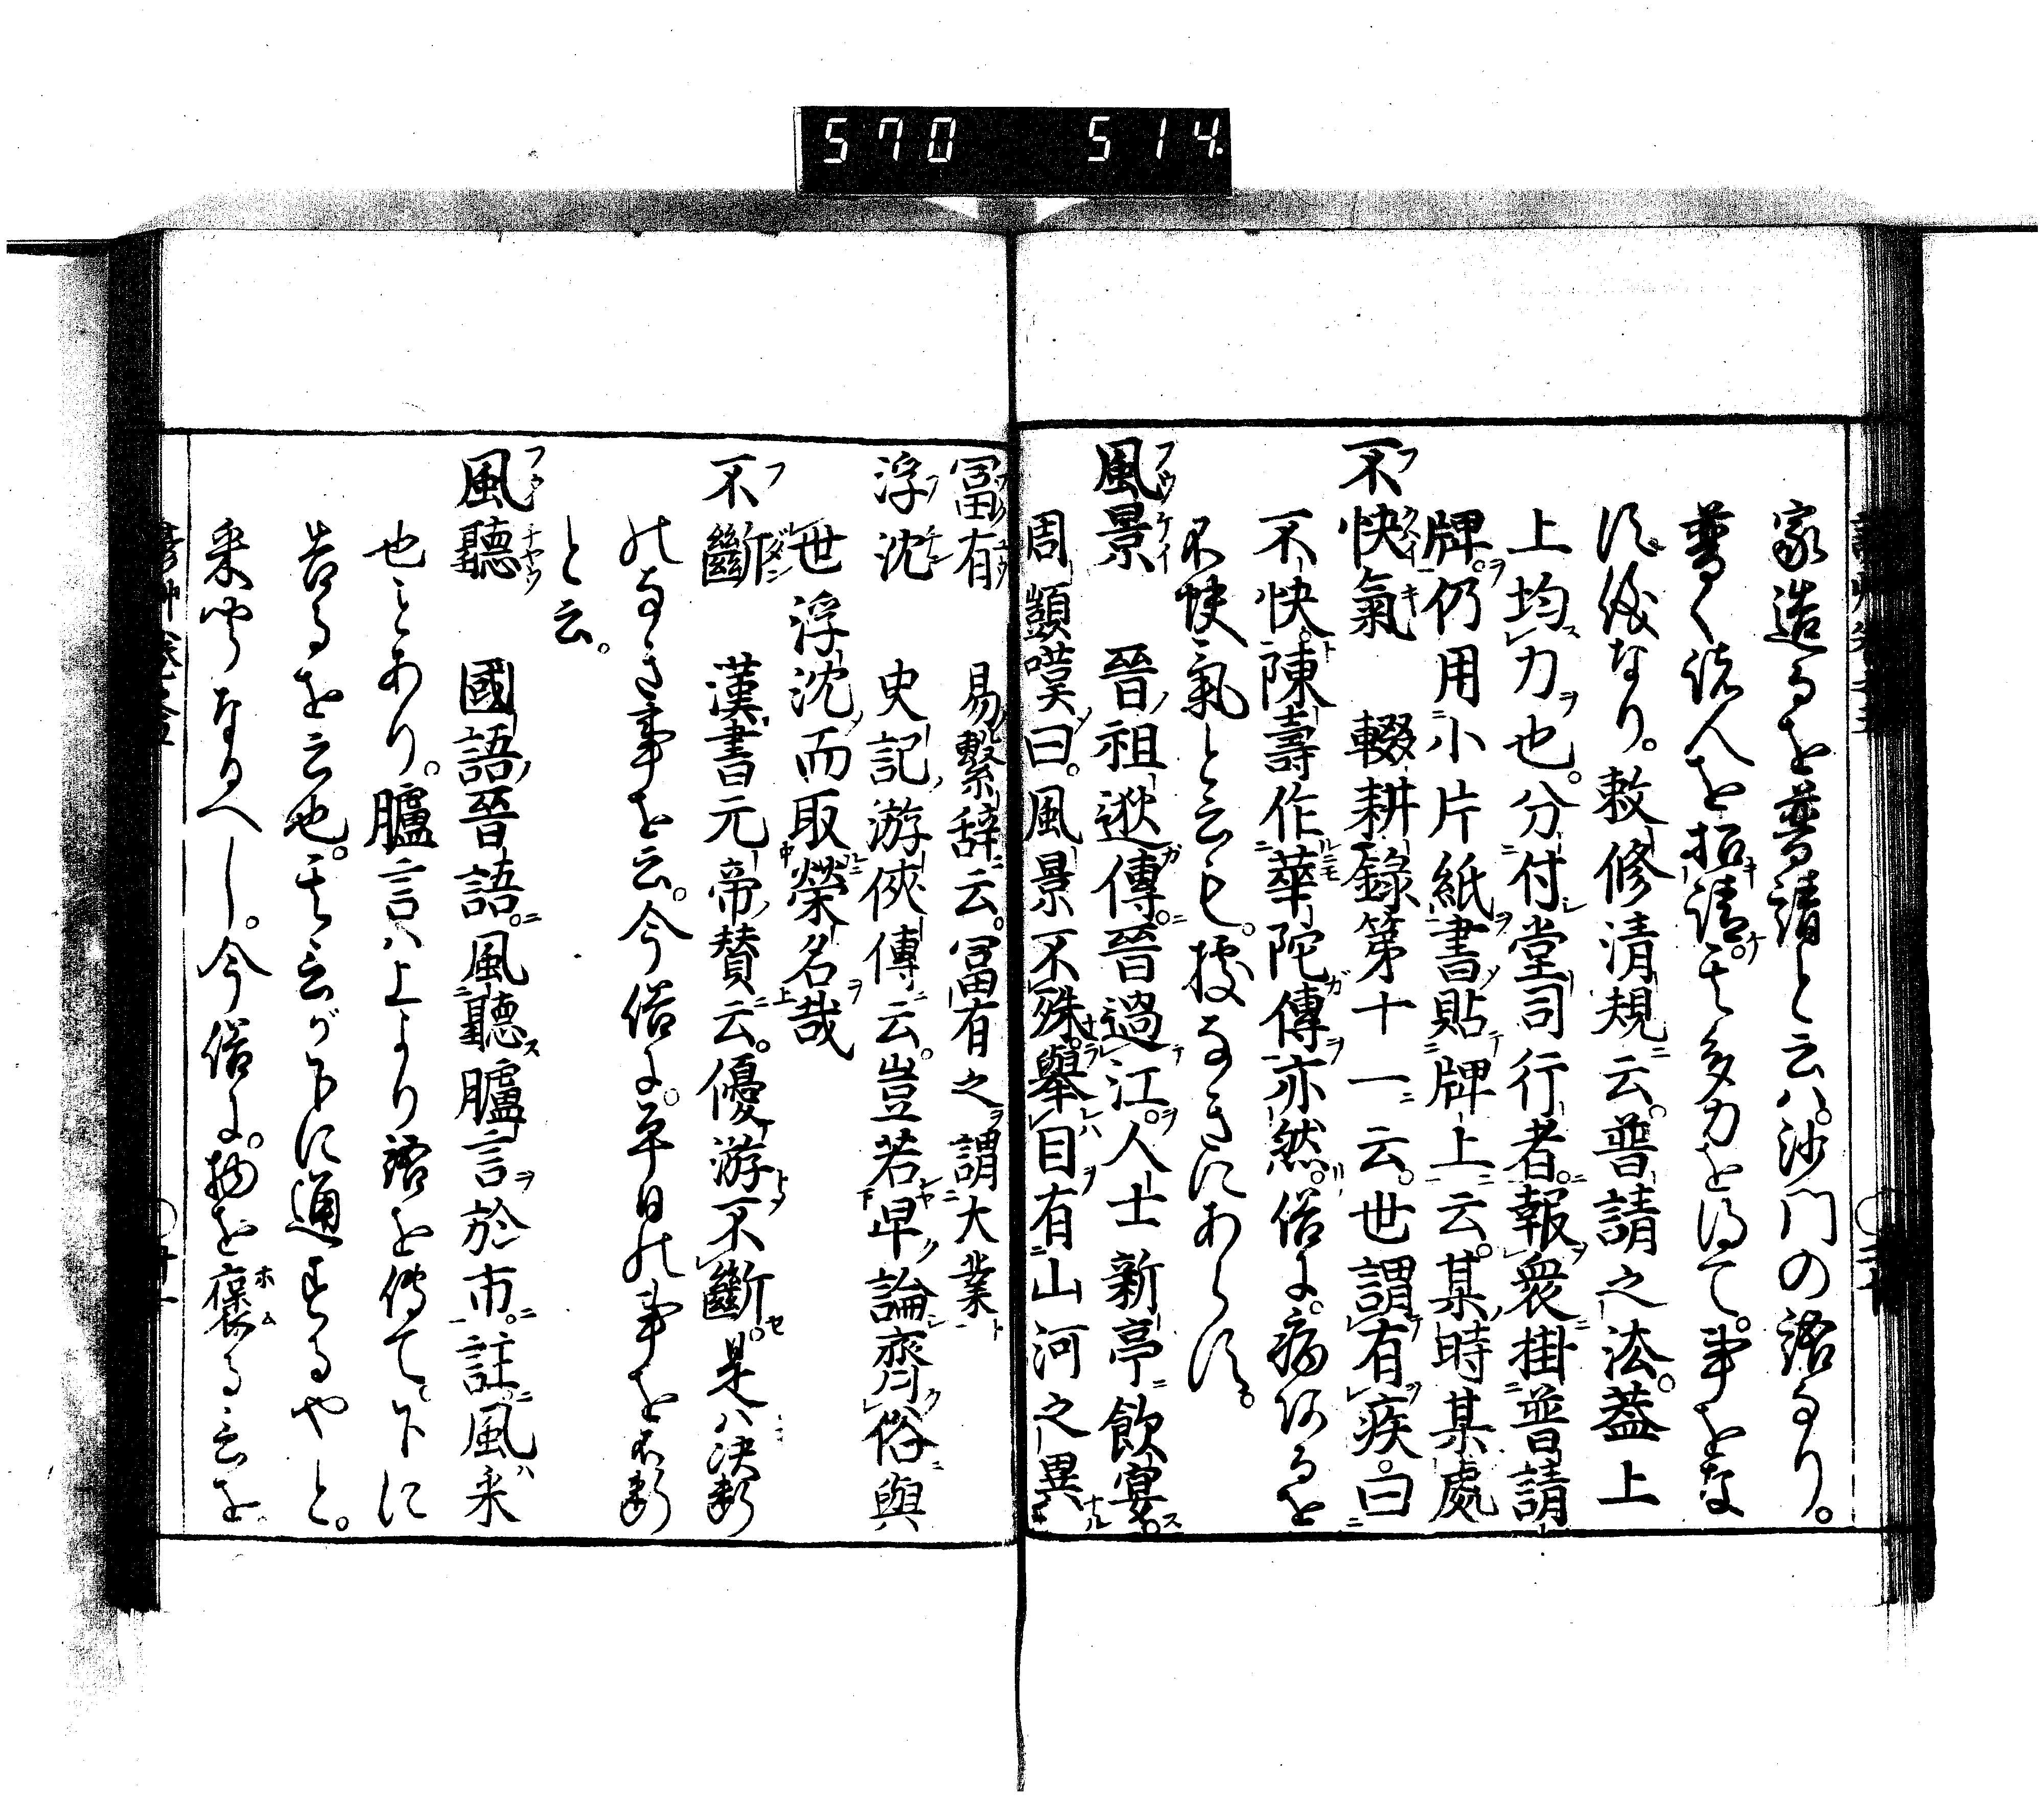 570 514.
家造るを普請と云ハ。沙門の語なり。
普く諸人を招請。其多力を得て。事をな
す儀なり。敕修清規云。普請之法。蓋上
上均力也。分付堂司行者。報衆掛普請
牌。仍用小片紙書貼牌上云。某時某處
不快氣 輟耕錄第十一云。世謂有疾。曰
不快。陳壽作華陀傳亦然。俗に。病あるを
不快氣と云も。據なきにあらす。
風景 晉祖逖傳。晉過江。人士新亭飲宴。
周顗嘆曰。風景不殊。舉目有山河之異
冨有 易繫辞云。冨有之謂大業
浮沈 史記游俠傳云。豈若卑論齊俗與
世浮沈而取榮名哉
不斷 漢書元帝賛云。優游不斷。是ハ決断
のなき事を云。今俗に。平日の事を不断
と云。
風聽 國語晉語。風聽臚言於市。註。風采
也とあり。臚言ハ上より語を傳て。下に
告るを云也。其言が下に通するやと。
采聞なるへし。今俗に。物を褒る言を